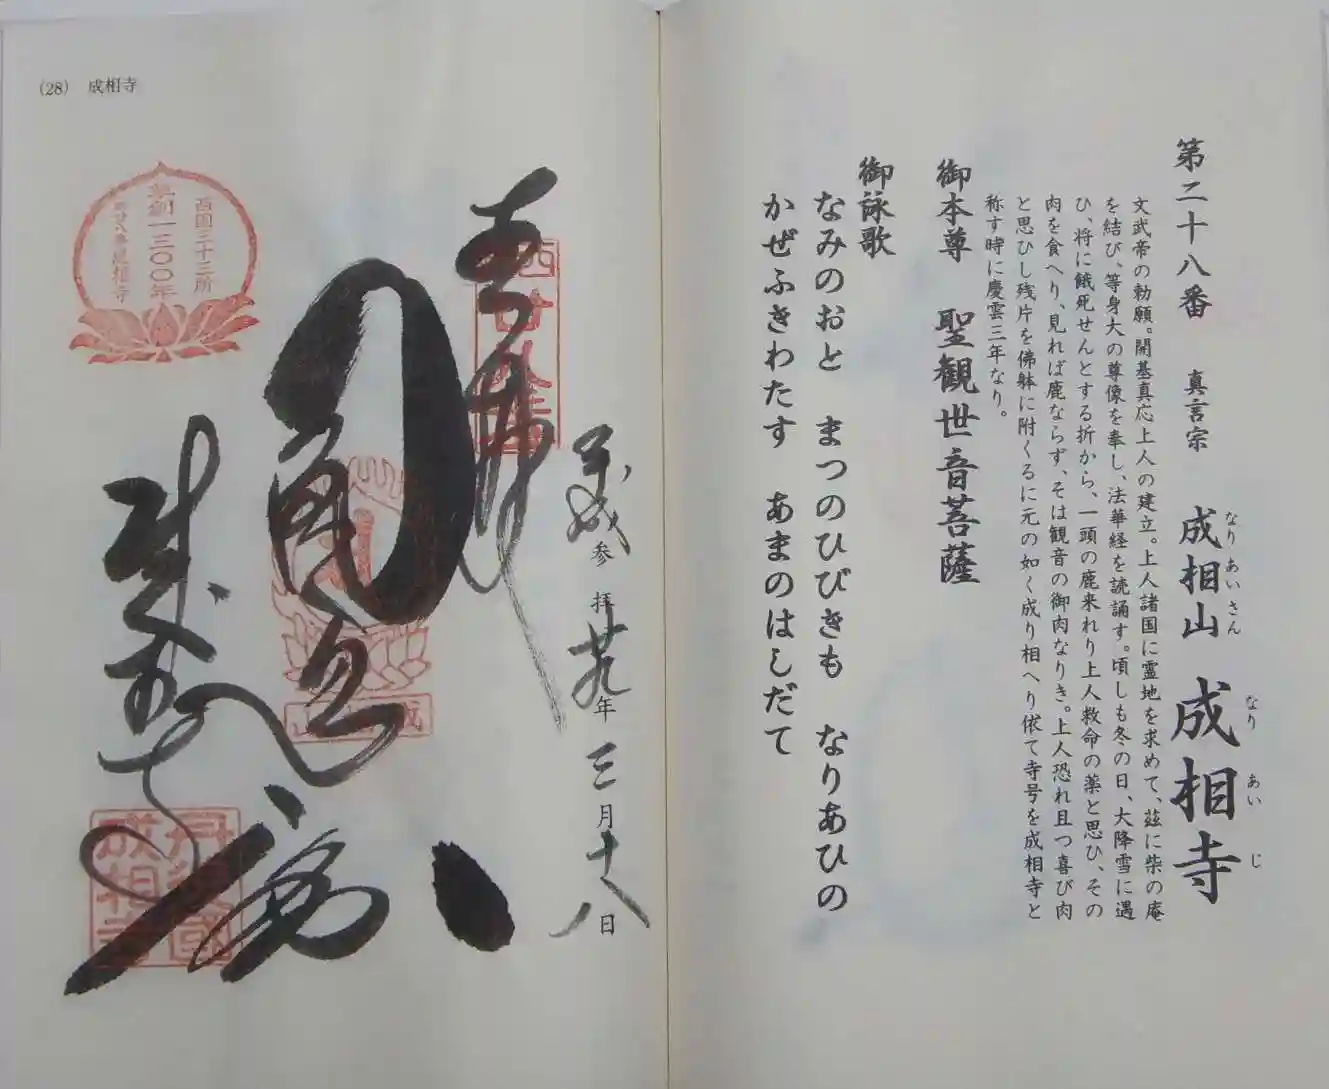 第二十八番　真言宗　成相山　成相寺
なりあいさん　なりあいじ
文武帝の勅願。開基真応上人の建立。上人諸国に霊地を求めて、茲に柴の庵
を結び、等身大の尊像を奉し、法華経を読誦す。頃しも冬の日、大降雪に遇
ひ、将に餓死せんとする折から、一頭の鹿来れり上人救命の薬と思ひ、その
肉を食へり、見れば鹿ならず、そは観音の御肉なりき。上人恐れ且つ喜び肉
と思ひし残片を佛躰に附くるに元の如く成り相へり依て寺号を成相寺と
称す時に慶雲三年なり。
御本尊　聖観世音菩薩
御詠歌
なみのおと　まつのひびきも　なりあひの
かぜふきわたす　あまのはしだて
(28)　成相寺
平成廿九年三月十八日
参拝
奉拝
成相寺
西国三十三所
草創一三〇〇年
第廿八番成相寺
丹後國
成相寺